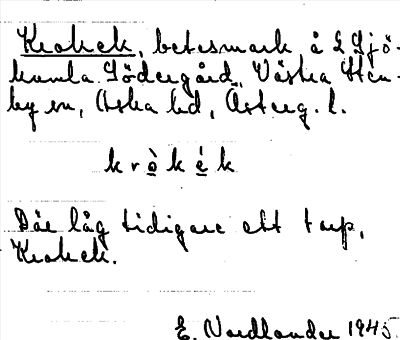 Krokek, betesmark å L Sjö-
kumla Södergård, Västra Sten-
by sn, Aska hd, Österg. l.
k r ò k é k
Där låg tidigare ett torp,
Krokek.
E. Nordlander 1945.